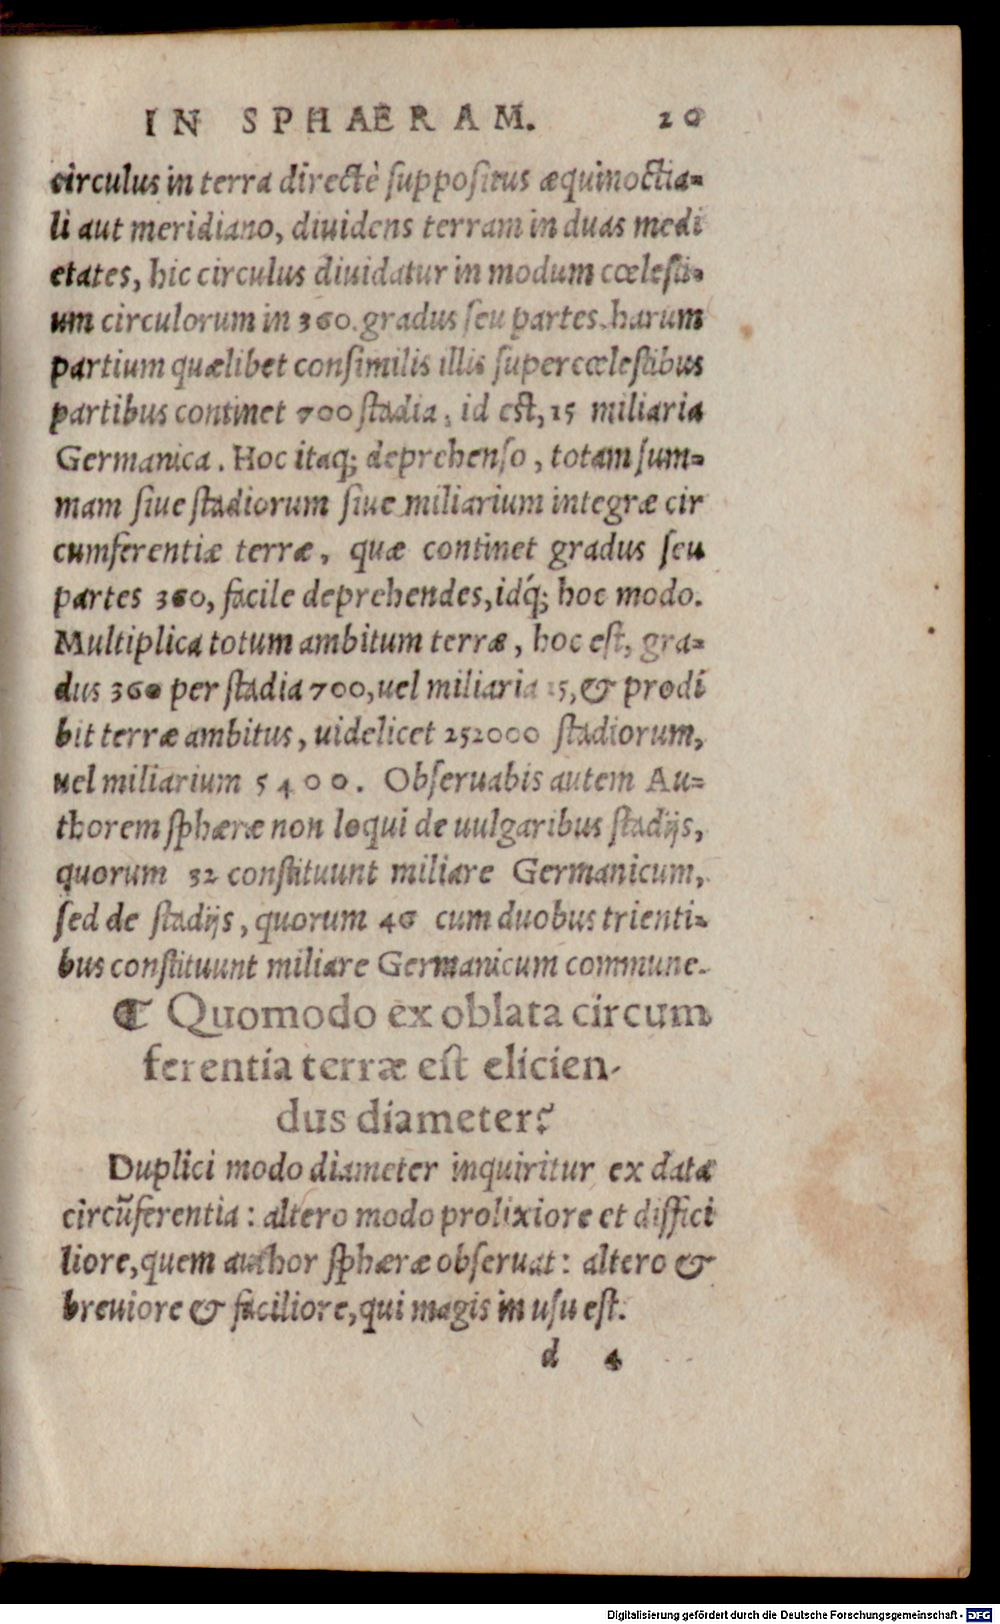 IN SPHAERAM. 20
circulus in terra directè ſuppoſitus æquinoctia-
li aut meridiano, diuidens terram in duas medi
etates, hic circulus diuidatur in modum cœleſti-
um circulorum in 360. gradus ſeu partes. harum
partium quælibet conſimilis illis ſupercœleſtibus
partibus continet 700 ſtadia, id eſt, 15 miliaria
Germanica. Hoc itaq; deprehenſo, totam ſum-
mam ſiue ſtadiorum ſiue miliarium integræ cir
cumferentiæ terræ, quæ continet gradus ſeu
partes 360, facile deprehendes, idq́; hoc modo.
Multiplica totum ambitum terræ, hoc eſt, gra-
dus 360 per ſtadia 700, uel miliaria 15, & prodi
bit terræ ambitus, uidelicet 252000 ſtadiorum,
uel miliarium 5400. Obſeruabis autem Au-
thorem ſphæræ non loqui de uulgaribus ſtadijs,
quorum 32 conſtituunt miliare Germanicum,
ſed de ſtadijs, quorum 46 cum duobus trienti-
bus conſtituunt miliare Germanicum commune.
¶ Quomodo ex oblata circum
ferentia terræ eſt elicien-
dus diameter?
Duplici modo diameter inquiritur ex datæ
circũferentia: altero modo prolixiore et diffici
liore, quem author ſphæræ obſeruat: altero &
breuiore & faciliore, qui magis in uſu eſt.
d 4
Digitalisierung gefördert durch die Deutsche Forschungsgemeinschaft - DFG